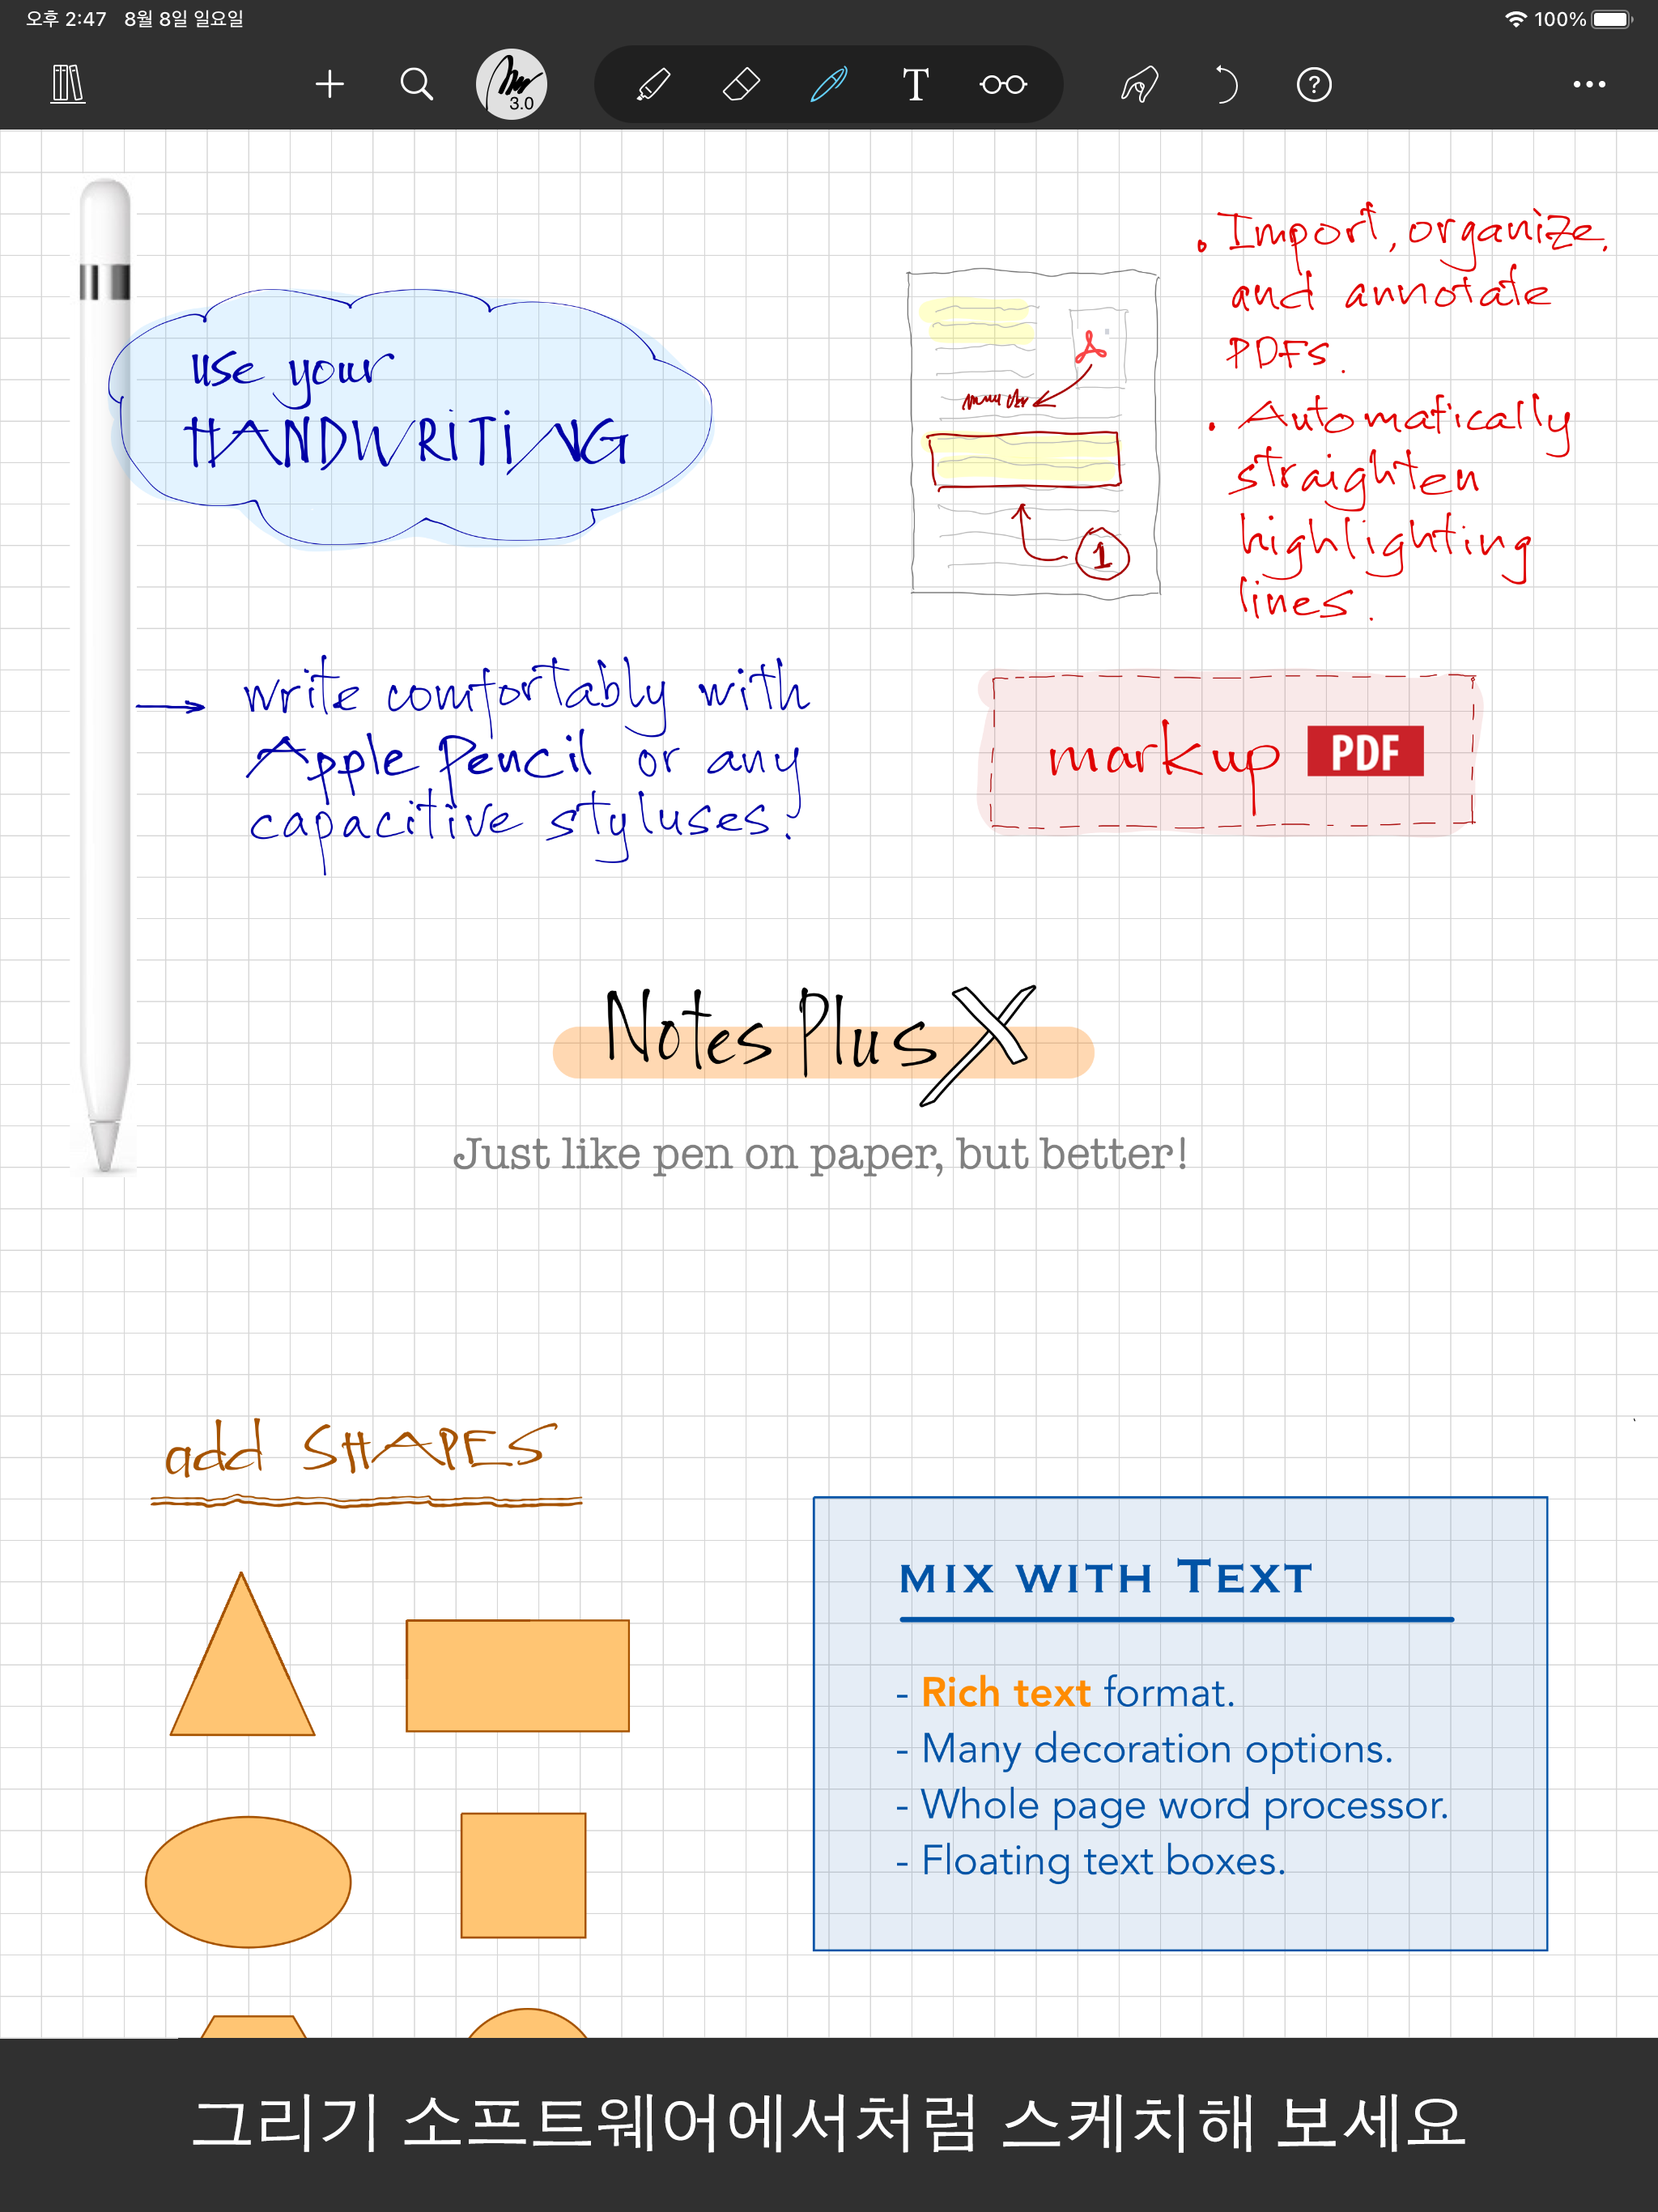 오후 2:47 8월 8일 일요일
100%
3.0
T
?
use your
HANDWRITING
. Import, organize,
and annotate
PDFs.
. Automatically
straighten
highlighting
lines.
1
write comfortably with
Apple Pencil or any
capacitive styluses!
markup PDF
Notes Plus X
Just like pen on paper, but better!
add SHAPES
MIX WITH TEXT
- Rich text format.
- Many decoration options.
- Whole page word processor.
- Floating text boxes.
그리기 소프트웨어에서처럼 스케치해 보세요